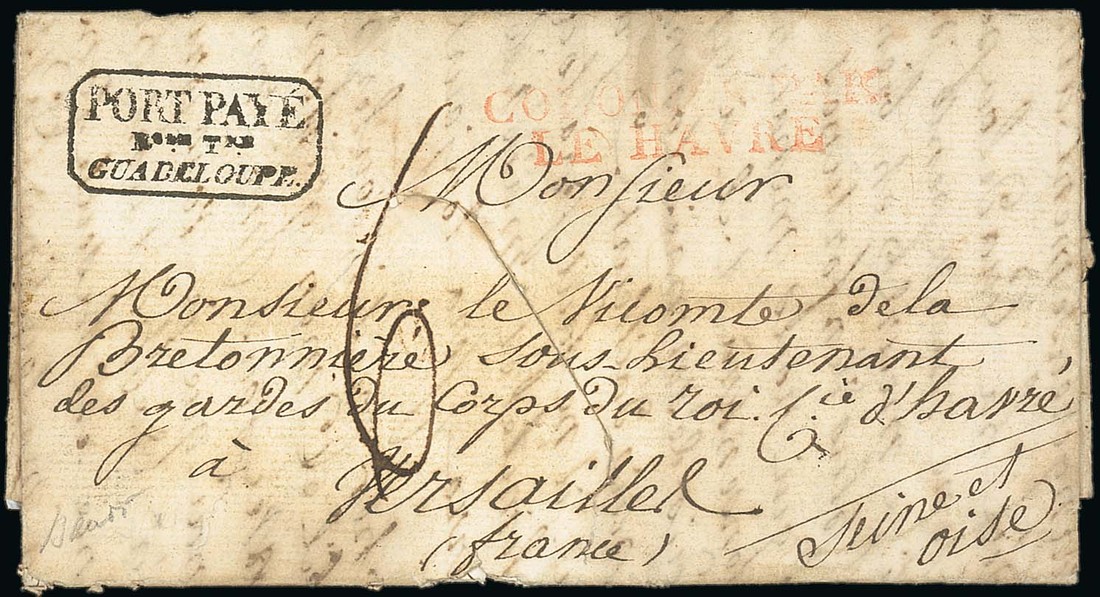 PORT PAYÉ
Bse Tre
GUADELOUPE.
LE HAVRE
Monsieur
Monsieur le Vicomte de la
Bretonnière sous-Lieutenant
des gardes du Corps du roi. Cie d'havré,
à Versailles
(france)
Seine et
oise
6